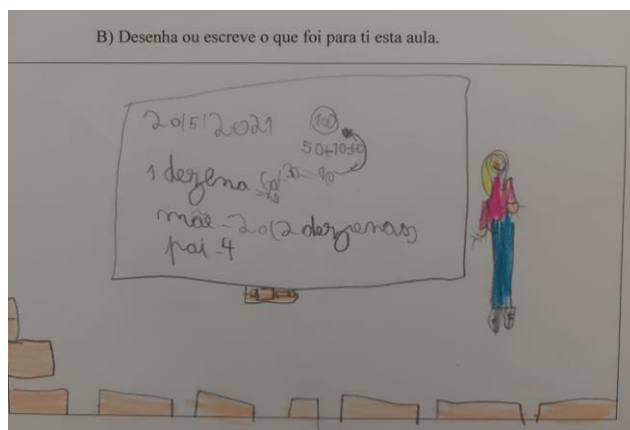 B) Desenha ou escreve o que foi para ti esta aula.
20/5/2021
100
50+10=60
1 dezena
mãe - 20 (2 dezenas)
pai - 4